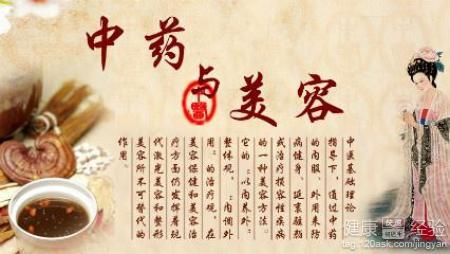 中药
与美容
中医基础理论
指导下，通过中药
的内服、外用来防
病健身、延衰驻颜
或治疗损容性疾病
的一种美容方法。
它的“以内养外”
整体观、“内调外
用”的治疗观，在
美容保健和美容治
疗方面仍发挥着现
代激光美容和整形
美容所不可替代的
作用。
健康 经验
tag.120ask.com/jingyan/